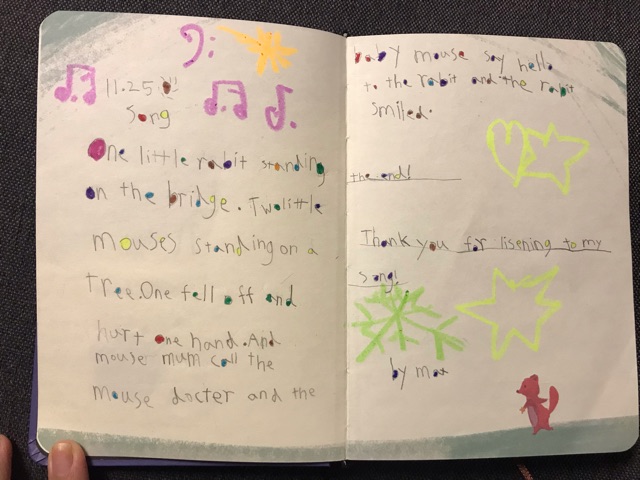 11.25
Song
One little rabit standing
on the bridge. Two little
mouses standing on a
tree. One fell off and
hurt one hand. And
mouse mum call the
mouse docter and the
baby mouse say hello
to the rabit and the rabit
smiled.
the end!
Thank you for lisening to my
song!
by max